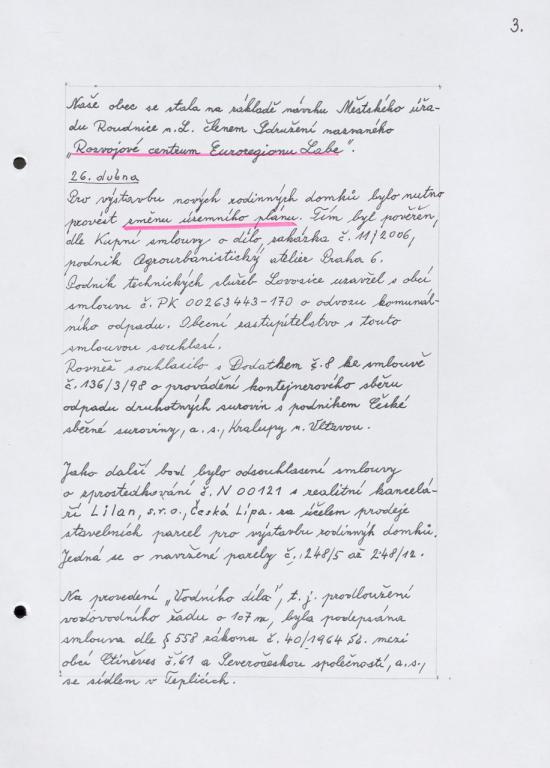 3.
Naše obec se stala na základě návrhu Městského úřa-
du Roudnice n.L. členem Sdružení nazvaného
„Rozvojové centrum Euroregionu Labe".
26. dubna
Pro výstavbu nových rodinných domků bylo nutno
provést směnu územního plánu. Tím byl pověřěn,
dle Kupní smlouvy o dílo, zakázka č. 11/2006,
podnik Agrourbanistický atelier Praha 6.
Podnik technických služeb Lovosice uzavřel s obcí
smlouvu č. PK 00263443-170 o odvozu komunál-
ního odpadu. Obecní zastupitelstvo s touto
smlouvou souhlasí.
Rovněž souhlasilo s Dodatkem č. 8 ke smlouvě
č. 136/3/98 o provádění kontejnerového sběru
odpadu druhotných surovin s podnikem České
sběrné suroviny, a.s., Kralupy n. Vltavou.
Jako další bod bylo odsouhlasení smlouvy
o zprostedkování č. N 00121 s realitní kancelá-
ří Lilan, s.r.o., Česká Lípa. za účelem prodeje
stavebních parcel pro výstavbu rodinných domků.
Jedná se o navržené parcely č. 248/5 až 248/12.
Na provedení „Vodního díla", t.j. prodloužení
vodovodního řadu o 107 m, byla podepsána
smlouva dle § 558 zákona č. 40/1964 Sb. mezi
obcí Ctiněves č. 61 a Severočeskou společností, a.s.,
se sídlem v Teplicích.